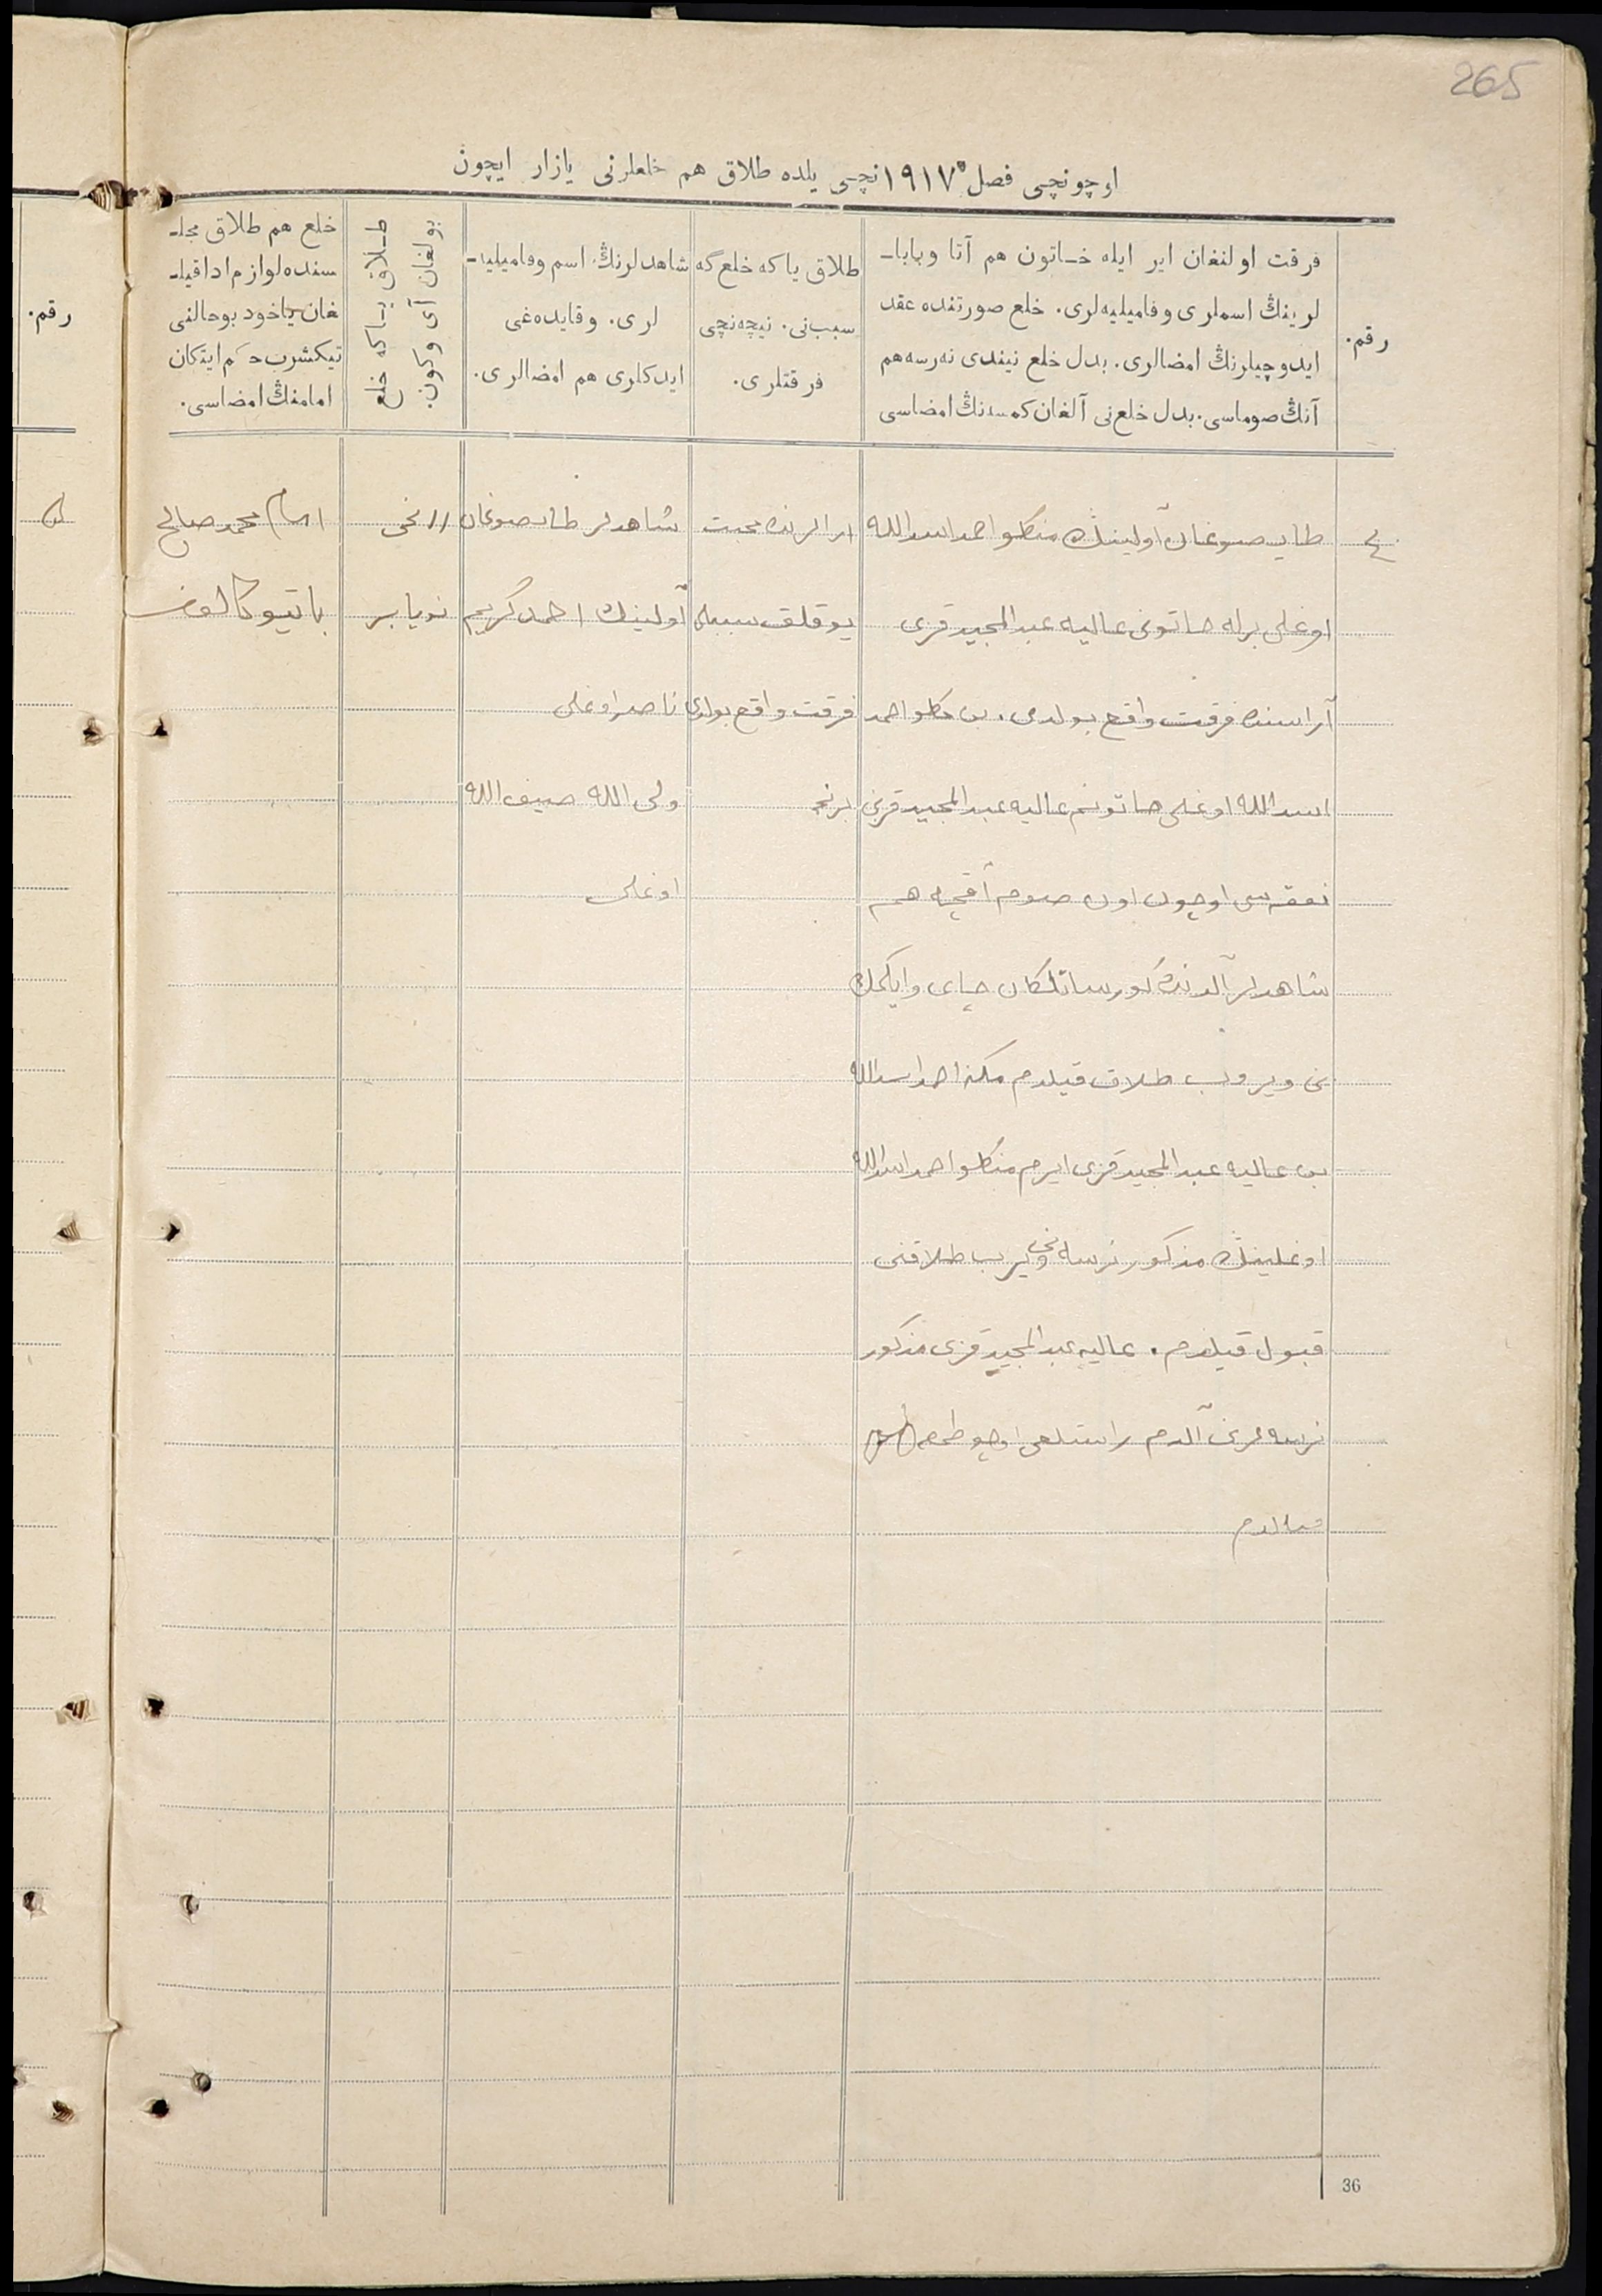 265
اوچونچی فصل ۱۹۱۷ نچی یلده طلاق هم خلعلرنی یازار ایچون
رقم.
فرقت اولنغان ایر ایله خاتون هم آتا وبابا-
لرینڭ اسملری وفامیلیه‌لری. خلع صورتنده عقد
ایدوچیلرنڭ امضالری. بدل خلع نیندی نه‌رسه هم
آنڭ صوماسی. بدل خلع‌نی آلغان کمسه‌نڭ امضاسی
طلاق یا که خلع گه
سبب‌نی. نیچه‌نچی
فرقتلری.
شاهدلرنڭ اسم وفامیلیه-
لری. وقایده‌غی
ایدکلری هم امضالری.
طلاق یا که خلع
بولغان آی وکون.
خلع هم طلاق مجلـ
سنده لوازم ادا قیلـ
غان یاخود بوحالنی
تیکشرب حکم ایتکان
امامنڭ امضاسی.
رقم.
٤
طای صوغان آولینڭ منکلو احمد اسدالله
اوغلی برله خاتونی عالیه عبدالمجید قزی
آراسنده فرقت واقع بولدی. بن منکلو احمد
اسدالله اوغلی خاتونم عالیه عبدالمجید قزینی
نفقه سی اوچون اون صوم آقچه هم
شاهدلر آلدنده کورساتلکان
نی ویروب طلاق قیلدم منکلو احمد اسدالله
بن عالیه عبدالمجید قزی ایرم منکلو احمد اسدالله
اوغلینڭ مذکور نرسه نی ویرب طلاقنی
قبول قیلدم. عالیه عبدالمجید قزی مذکور
آلدم
ارالرنده محبت
یوقلق سببلی
فرقت واقع بولدی
برنچی
شاهدلر طای صوغان
آولینڭ احمد کریم
ناصر اوغلی
ولی الله صیف الله
اوغلی
11 نچی
نویابر
امام محمد صالح
باتیوکالوف
٥
36